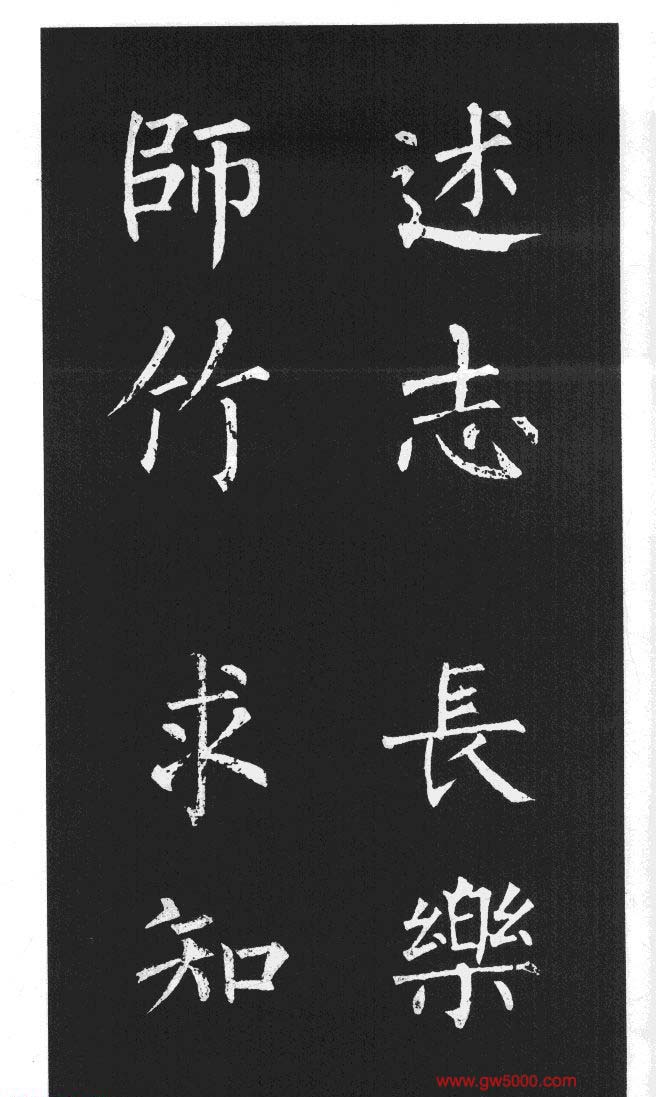 述志長樂
師竹求知
www.gw5000.com